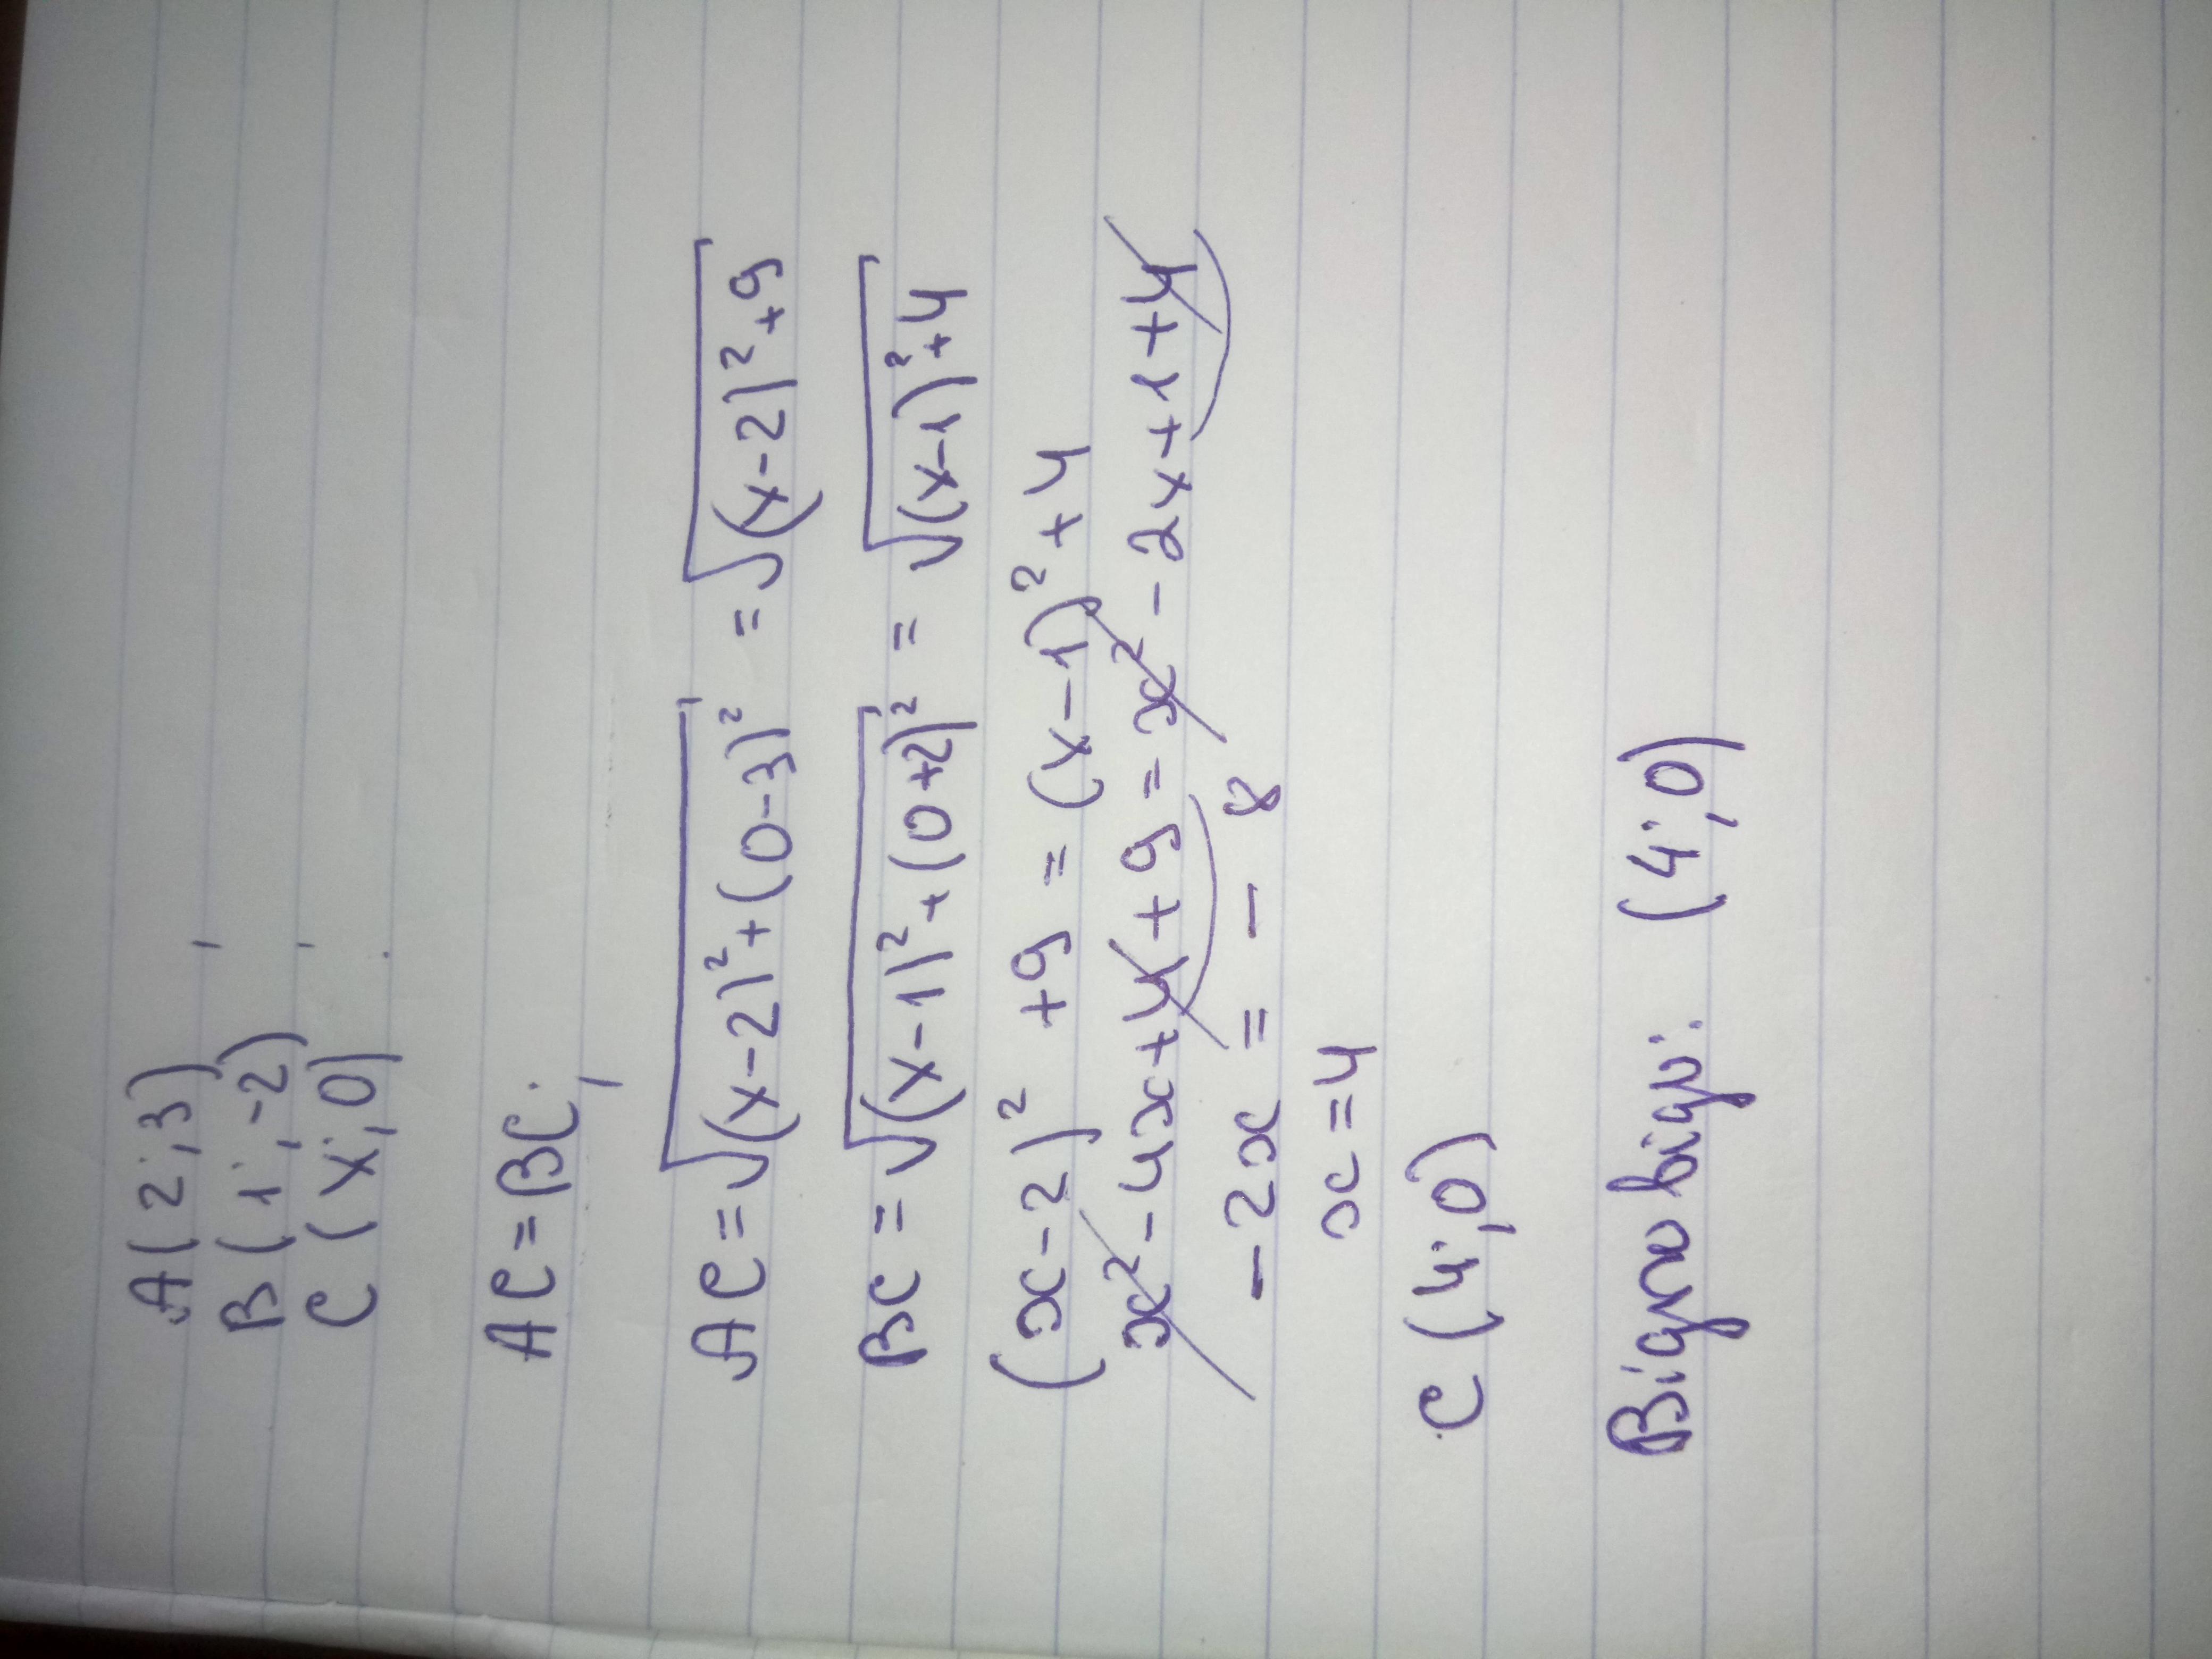 A(2;3)
B(1;-2)
C(x;0)
AC=BC;
AC=√(x-2)²+(0-3)² =√(x-2)²+9
BC=√(x-1)²+(0+2)² = √(x-1)²+4
(x-2)² +9 = (x-1)²+4
x²-4x+4+9=x²-2x+1+4
-2x = -8
x=4
C(4;0)
Відповідь: (4;0)